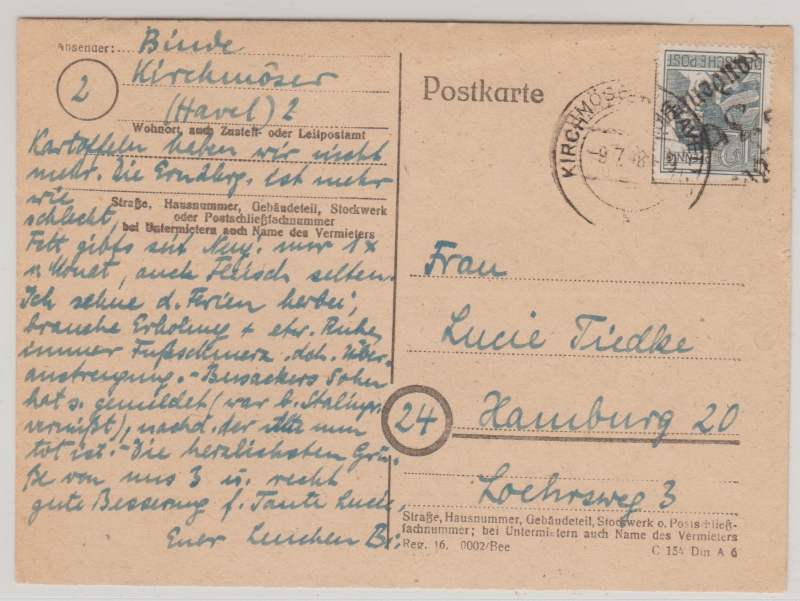 Absender: Binde
2
Kirchmöser
(Havel) 2
Wohnort, auch Zustell- oder Leitpostamt
Kartoffeln haben wir nicht
mehr. Die Ernährg. ist mehr
wie
schlecht,
Straße, Hausnummer, Gebäudeteil, Stockwerk
oder Postschließfachnummer
bei Untermietern auch Name des Vermieters
Fett gibt's seit nur 1x
i. Monat, auch Fleisch selten.
Ich sehne d. Ferien herbei,
brauche Erholung + etw. Ruhe,
immer Fußschmerz dch. Über-
anstrengung. - Busackers Sohn
hat s. gemeldet (war b. Stalingr.
vermißt), nachd. der nun
tot ist. - Die herzlichsten Grü-
ße von uns 3 u. recht
gute Besserung f. Tante Lucie,
Euer Lenchen Bi.
Postkarte
DEUTSCHE POST
12
PFENNIG
KIRCHMÖS
-9.7.48
Frau
Lucie Tiedke
24
Hamburg 20
Loehrsweg 3
Straße, Hausnummer, Gebäudeteil, Stockwerk o. Postschließ-
fachnummer; bei Untermietern auch Name des Vermieters
Reg. 16. 0002/Bee
C 154 Din A 6